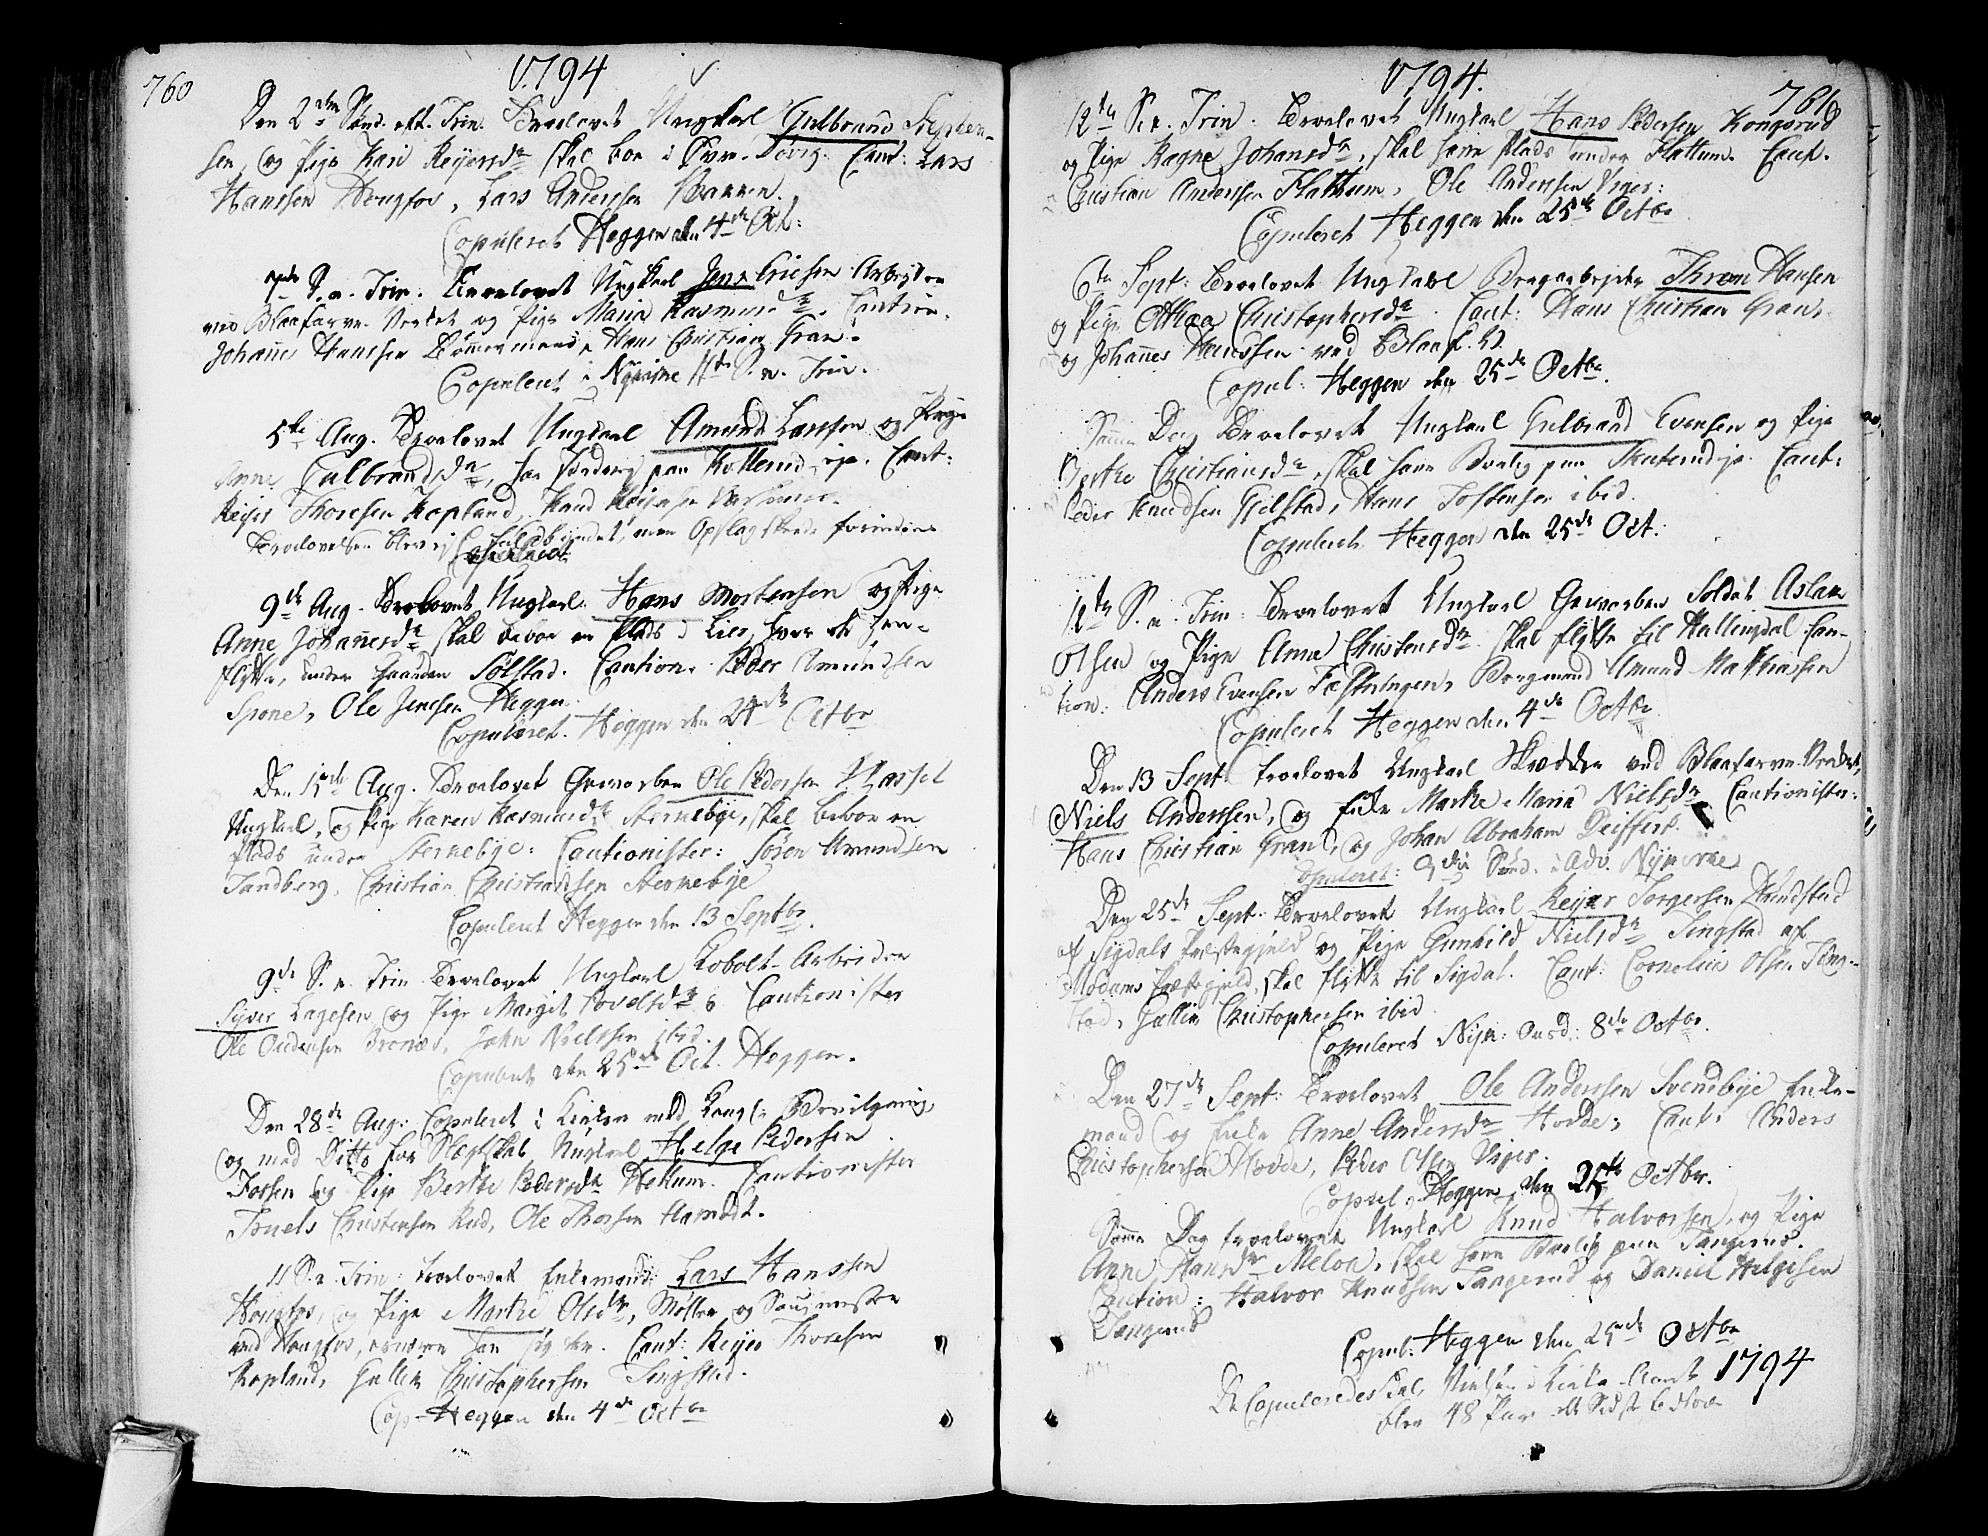 760
1794
Den 2den Sönd. eft. Trin. Troelovet Ungkarl Gulbrand Stephen-
sen, og Pige Kari Reyersdr skal boe i Øvre Caut: Lars
Hanssen Hougfos, Lars Anderssen
Copuleret Heggen den 4de Oct:
7de S. a. Trin. Troelovet Ungkarl Jens Ericsen Arbeyder
ved Blaafarve Verket og Pige Maria Rasmusdr. Caution.
Johannes Hanssen Tömmermand, Hans Christian Gran.
Copuleret i Nykirke 11te S. a. Trin.
5te Aug. Troelovet Ungkarl Amund Larssen og Pige
Anne Gulbrandsdr, paa Kollerud eje. Caut:
Reyer Thoresen Kopland,
Troelovelsen blev ej men Opslag skede forinden
Copuleret
9de Aug. Troelovet Ungkarl Hans Mortensen og Pige
Anne Johannesdr skal beboe en Plads i Lier, hvor de hen-
flytte, under Gaarden Solstad. Caution. Peder Amundsen
Spone, Ole Jensen Heggen.
Copuleret. Heggen den 24de Octbr
Den 15de Aug. Troelovet Gevorben Ole Pedersen Hassel
Ungkarl, og Pige Karen Rasmusdr Sternebye, skal beboe en
Plads under Sternebye. Cautionister: Sören Amundsen
Sandberg, Christian Christiansen Sternebye
Copuleret Heggen den 13 Septbr.
9de S. a. Trin Troelovet Ungkarl Kobolt-Arbeider
Syver Lagesen og Pige Margit Povelsdr. Cautionister
Ole John Nielssen ibid.
Copuleret den 25de Oct. Heggen.
Den 28de Aug: Copuleret i Kirken med Kongl. Bevilgning,
og med Ditto for Slegtskab Ungkarl Helge Pedersen
Fossen og Pige Berthe Pedersdr Hellum. Cautionister
Truels Christensen Rud, Ole Thorsen Hamodt.
11 S. a. Trin: Troelovet Enkemand Lars Hanssen
Hougfos, og Pige Marthe Olsdr, Møller og Saugmester
ved Hougfos, ernærer han sig der. Caut: Reyer Thoresen
Kopland, Gullik Christophersen Tingstad.
Cop- Heggen den 4de Octbr
1794.
761
12te S. e. Trin. Troelovet Ungkarl Hans Pedersen Kongsrud
og Pige Ragne Johansdr, skal have Plads under Flattum. Caut.
Christian Anderssen Flattum, Ole Anderssen Viger:
Copuleret Heggen den 25de Octbr
6te Sept: Troelovet Ungkarl Bergarbejder Thrond Hansen
og Pige Christophersdr. Caut: Hans Christian Gran,
og Johannes Hanssen ved Blaaf. V.
Copul: Heggen den 25de Octbr.
Samme Dag Troelovet Ungkarl Gulbrand Evensen og Pige
Berthe Christiansdr, skal have Boelig paa Skuterud eje. Caut:
Peder Knudsen Gjelstad, Hans Tostensen ibid.
Copuleret Heggen den 25de Oct:
12te S. a. Trin: Troelovet Ungkarl Gevorben Soldat Aslak
Olsen og Pige Anna Christensdr skal flytte til Hallingdal. Cau-
tion: Anders Evensen Fæstningen, Bergmand Amund Mathiasen
Copuleret Heggen den 4de Octbr
Den 13 Sept: troelovet Ungkarl Skrædder ved Blaafarve-Verket,
Niels Anderssen, og Enke Marthe Maria Nielsdr Cautionister:
Hans Christian Gran, og Johan Abraham Deiffert.
Copuleret: 3die Sönd. i Adv. Nykirke
Den 25de Sept: Troelovet Ungkarl Reyer Torgersen
af Sigdals Præstegjeld og Pige Gunhild Nielsdr Tingstad af
Modums Præstegjeld, skal flytte til Sigdal. Caut: Cornelius Olsen Ting-
stad, Gullik Christophersen ibid
Copuleret Nyk: Onsd: 8de Octbr.
Den 27de Sept: Troelovet Ole Anderssen Svendbye Enke-
mand og Enke Anne Andersdr Hovde, Caut: Anders
Christophersen Hovde, Peder Olsen Viger.
Copul. Heggen den 25de Octbr.
Samme Dag troelovet Ungkarl Knud Halvorsen, og Pige
Anne Hansdr Meloe, skal have Boelig paa Tangerud.
Caution: Halvor Knudsen Tangerud og Daniel Helgesen
Tangerud
Copul: Heggen den 25de Octbr
De Copuleredes Tal i Kirke Aaret 1794
blev 48 Par